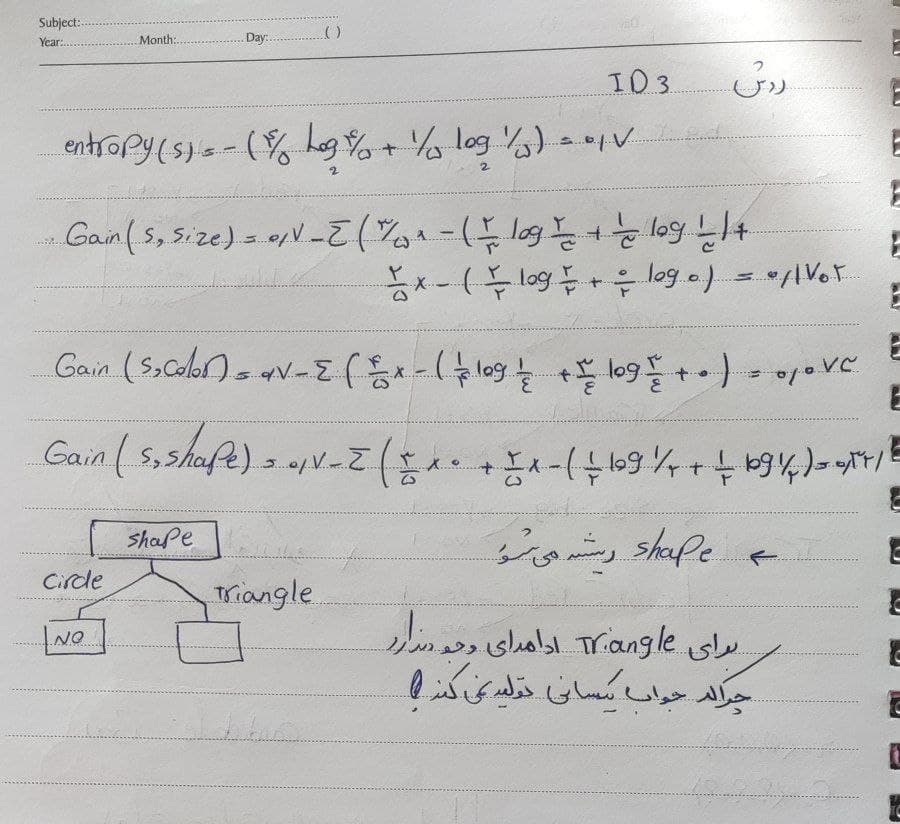 Subject:
Year: Month: Day: ( )
روش ID3
entropy(s) = -(۴/۵ log₂ ۴/۵ + ۱/۵ log₂ ۱/۵) = ۰/۷
Gain(s, size) = ۰/۷ - Σ(۳/۵ × -(۲/۳ log ۲/۳ + ۱/۳ log ۱/۳) +
۲/۵ × -(۲/۲ log ۲/۲ + ۰/۲ log ۰) = ۰/۱۷۰۲
Gain(s, color) = ۰/۷ - Σ(۴/۵ × -(۱/۴ log ۱/۴ + ۳/۴ log ۳/۴ + ۰) = ۰/۰۷۳
Gain(s, shape) = ۰/۷ - Σ( × ۰ + ۲/۵ × -(۱/۲ log ۱/۲ + ۱/۲ log ۱/۲) = ۰/۳۲۱
← shape ریشه می‌شود
shape
circle Triangle
NO
برای Triangle ادامه‌ای وجود ندارد
چراکه جواب یکسانی تولید نمی کند!